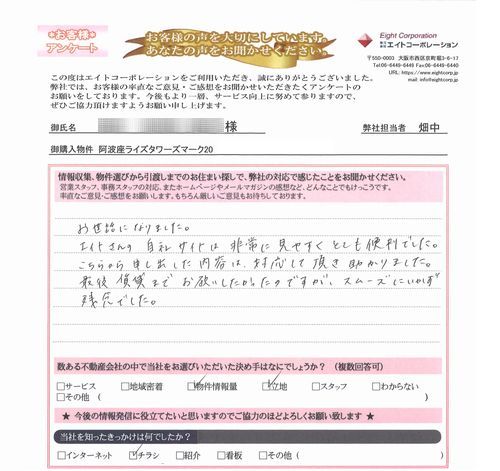 *お客様*
アンケート
お客様の声を大切にしています。
あなたの声をお聞かせください。
Eight Corporation
エイトコーポレーション
〒550-0003 大阪市西区京町堀3-6-17
Tel 06-6449-6449 Fax 06-6449-6440
URL: https://www.eightcorp.jp
mail: info@eightcorp.jp
この度はエイトコーポレーションをご利用いただき、誠にありがとうございました。
弊社では、お客様の率直なご意見・ご感想をお聞かせいただきたくアンケートの
お願いをしております。今後もより一層、サービス向上に努めて参りますので、
ぜひご協力頂けますようお願い申し上げます。
御氏名 様 弊社担当者 畑中
御購入物件 阿波座ライズタワーズマーク20
情報収集、物件選びから引渡しまでのお住まい探しで、弊社の対応で感じたことをお聞かせください。
営業スタッフ、事務スタッフの対応、またホームページやメールマガジンの感想など、どんなことでもけっこうです。
率直なご意見・ご感想をお願いします。もちろん厳しいご意見もお待ちしております。
お世話になりました。
エイトさんの自社サイトは非常に見やすくとても便利でした。
こちらから申し出した内容は、対応して頂き助かりました。
最後 賃貸までお願いしたかったのですが、スムーズにいかず
残念でした。
数ある不動産会社の中で当社をお選びいただいた決め手はなにでしょうか? (複数回答可)
□サービス □地域密着 ☑物件情報量 ☑立地 □スタッフ □わからない
□その他 ( )
★ 今後の情報発信に役立てたいと思いますのでご協力のほどよろしくお願い致します ★
当社を知ったきっかけは何でしたか?
□インターネット ☑チラシ □紹介 □看板 □その他 ( )